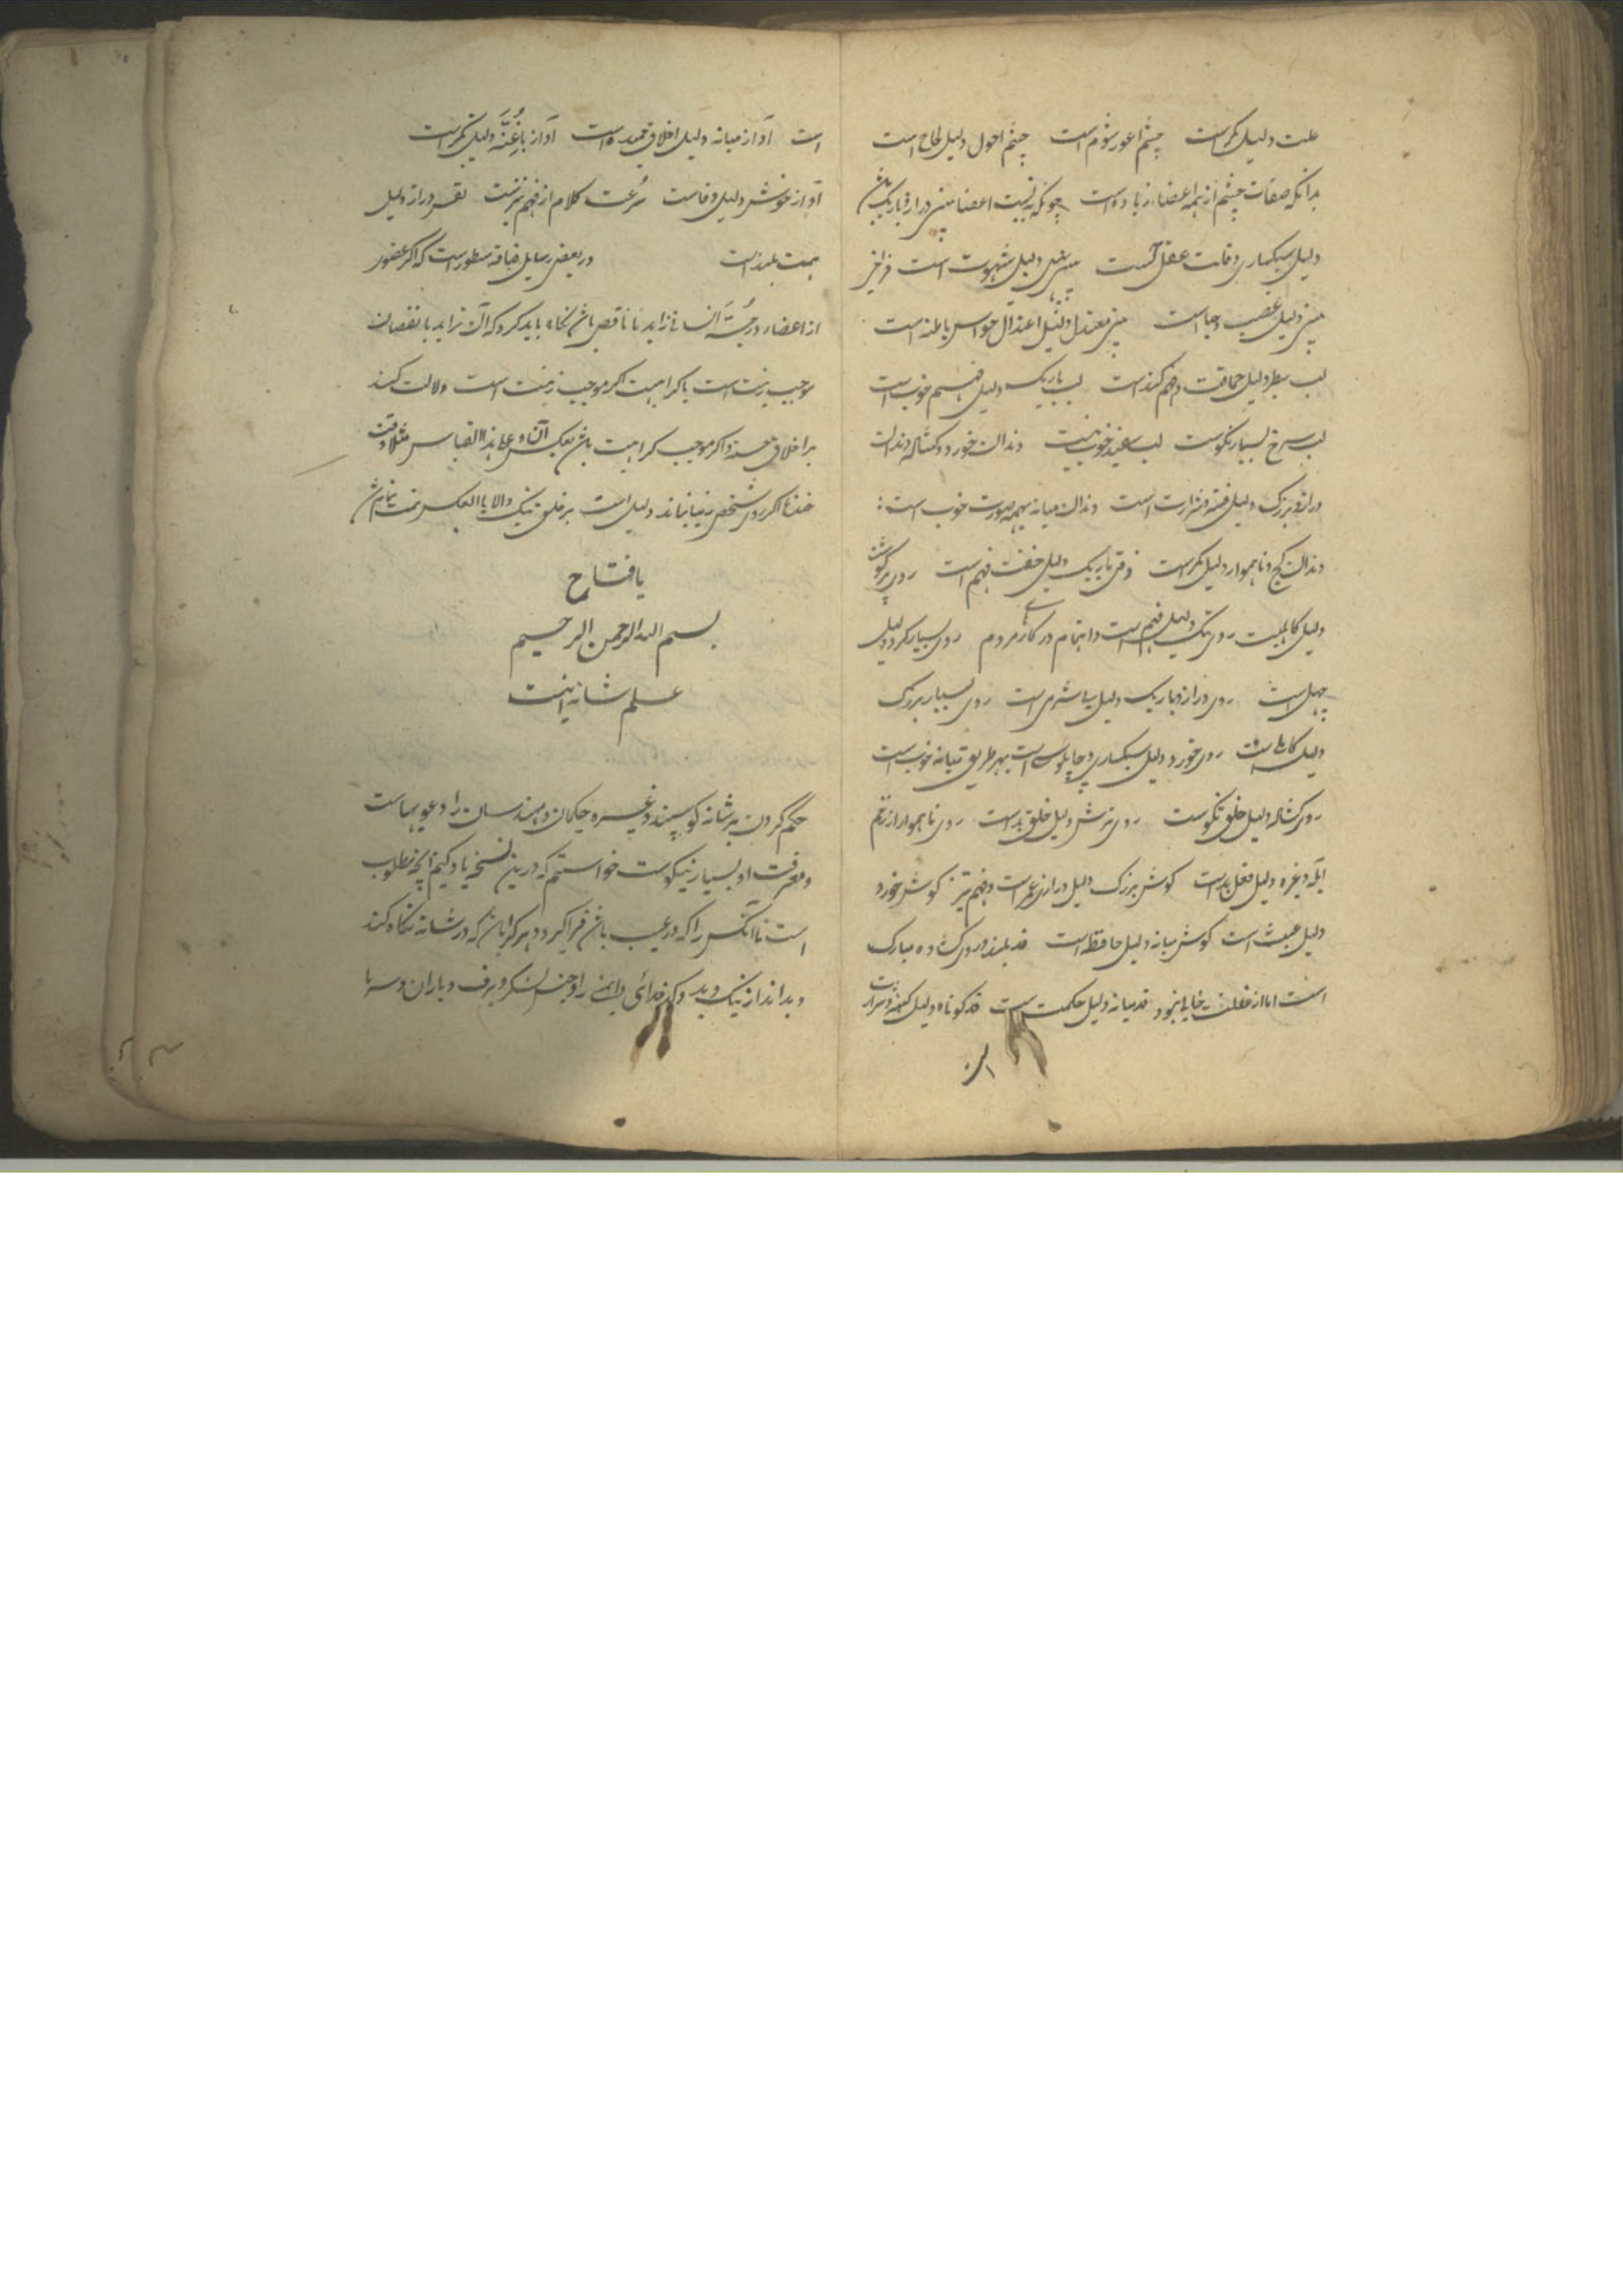 علت دلیل مکر است چشم اعور شوم است چشم احول دلیل لجاج است
بدانکه صفات چشم از همه اعضاء زیاده است چونکه به نسبت اعضا بینی دراز و باریک باشد
دلیل سبکساری و قلت عقل است بینی دلیل شهوت است فراخی
بینی دلیل غضب و حیا است بینی معتدل دلیل اعتدال حواس باطنه است
لب سطبر دلیل حماقت و فهم کند است لب باریک دلیل فهم خوب است
لب سرخ بسیار نکوست لب سفید خوب نیست دندان خورد و کشاده دندان
دراز و بزرک دلیل فتنه و شرارت است دندان میانه بهمه صورت خوب است
دندان کج و ناهموار دلیل مکر است ذقن باریک دلیل خفت فهم است روی پر کوشت
دلیل کاهلیست روی تنک دلیل فهم است و اهتمام در کارهای مردم روی بسیار کرد دلیل
جهل است روی دراز و باریک دلیل بی شرمی است روی بسیار بزرک
دلیل کاهلی است روی خورد دلیل سبکساری و چاپلوسی است بهر طریق میانه خوب است
روی کشاده دلیل خلق نکوست روی ترش دلیل خلق بد است روی ناهموار از زخم
آبله و غیره دلیل فعل بد است کوش بزرک دلیل درازی عمر است و فهم تیز کوش خورد
دلیل است کوش میانه دلیل حافظه است قد بلند و روی کشاده مبارک
است اما از غفلت خالی نبود قد میانه دلیل حکمت است قد کوتاه دلیل کینه و شرارت
است آواز میانه دلیل اخلاق حمیده است آواز با غنّه دلیل تکبر است
آواز خوش دلیل وفاست سرعت کلام از فهم تیزست نفس دراز دلیل
همت بلند است در بعض رسایل قیافه مسطور است که اکر عضوی
از اعضاء در جثّه انسانی زاید یا ناقص باشد نکاه باید کرد که آن زاید یا نقصان
موجب زینت است یا کراهیت اکر موجب زینت است دلالت کند
بر اخلاق حسنه و اکر موجب کراهیت باشد بعکس آن و علی هذا القیاس مثلا وقت
خنده اکر روی شخص زیبا نماید دلیل است بر خلق نیک والا بالعکس تمت تمام شد
یا فتاح
بسم الله الرحمن الرحیم
علم شانه اینست
حکم کردن بر شانه کوسپند و غیره حکیمان و مهندسان را دعویهاست
و معرفت او بسیار نیکوست خواستم که درین نسخه یاد کنیم آنچه مطلوب
است تا آنکس را که در غیب باشد فراکیرد و هر که در شانه نکاه کند
و بداند از نیک و بد و کدخدائی و ایمنی راه و جنس لشکر و برف و باران و سرما